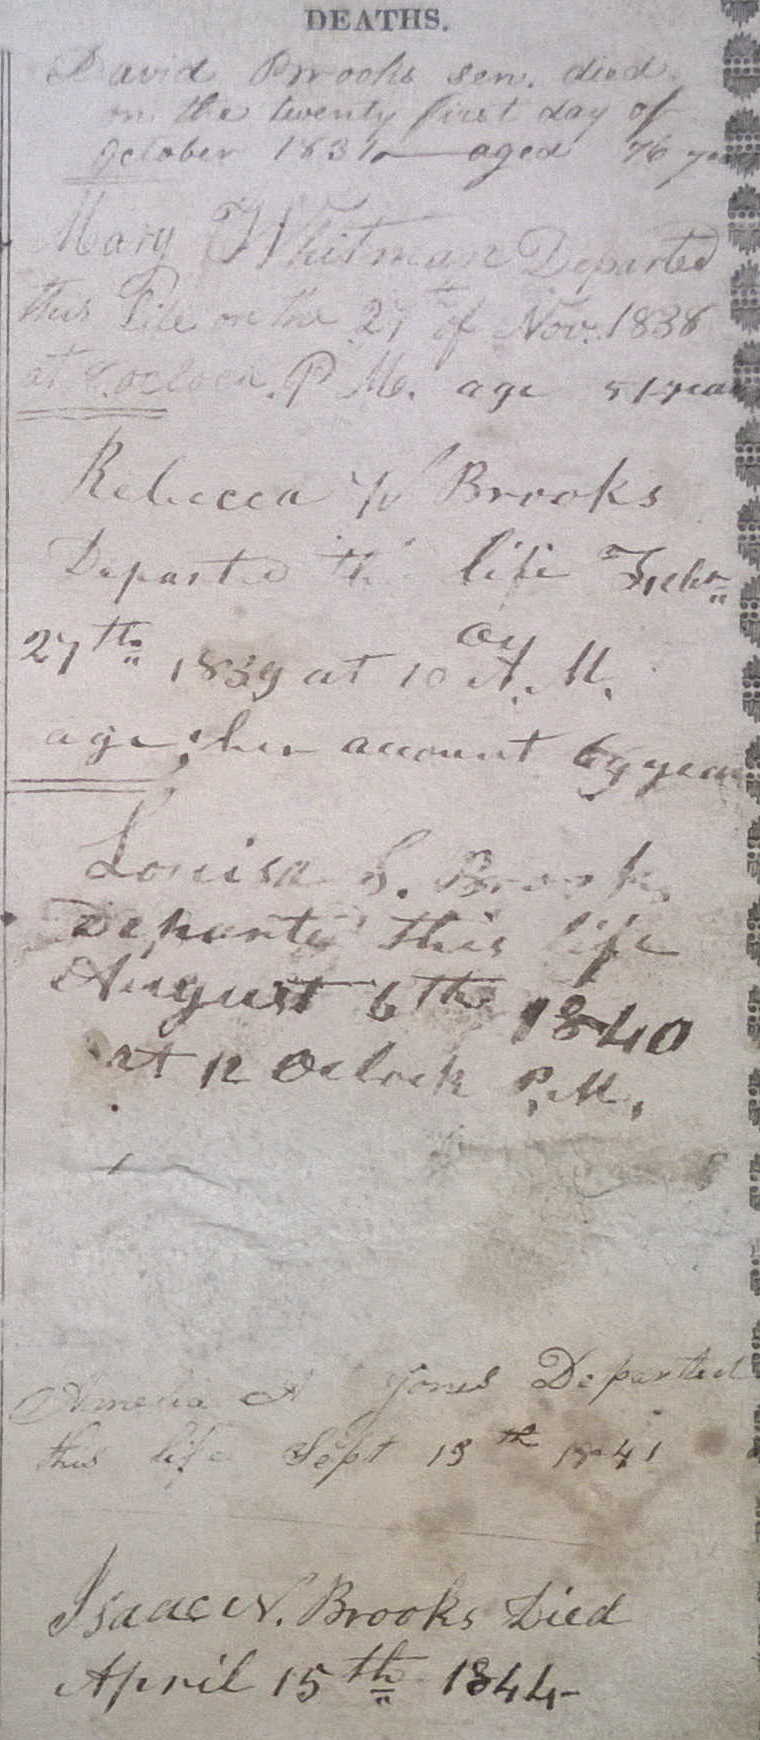 DEATHS.
David Brooks sen. died
on the twenty first day of
October 1831 — aged 76 years
Mary Whitman Departed
this Life on the 27th of Nov. 1838
at oclock. P. M. age 51 years
Rebecca W Brooks
Departed this life Febr
27th 1839 at 10 A. M.
age, her account 69 years
by
Louisa S. Brooks
Departed this life
August 6th 1840
at 12 Oclock P. M.
Amelia A Jones Departed
this life Sept 13th 1841
Isaac N. Brooks Died
April 15th 1844